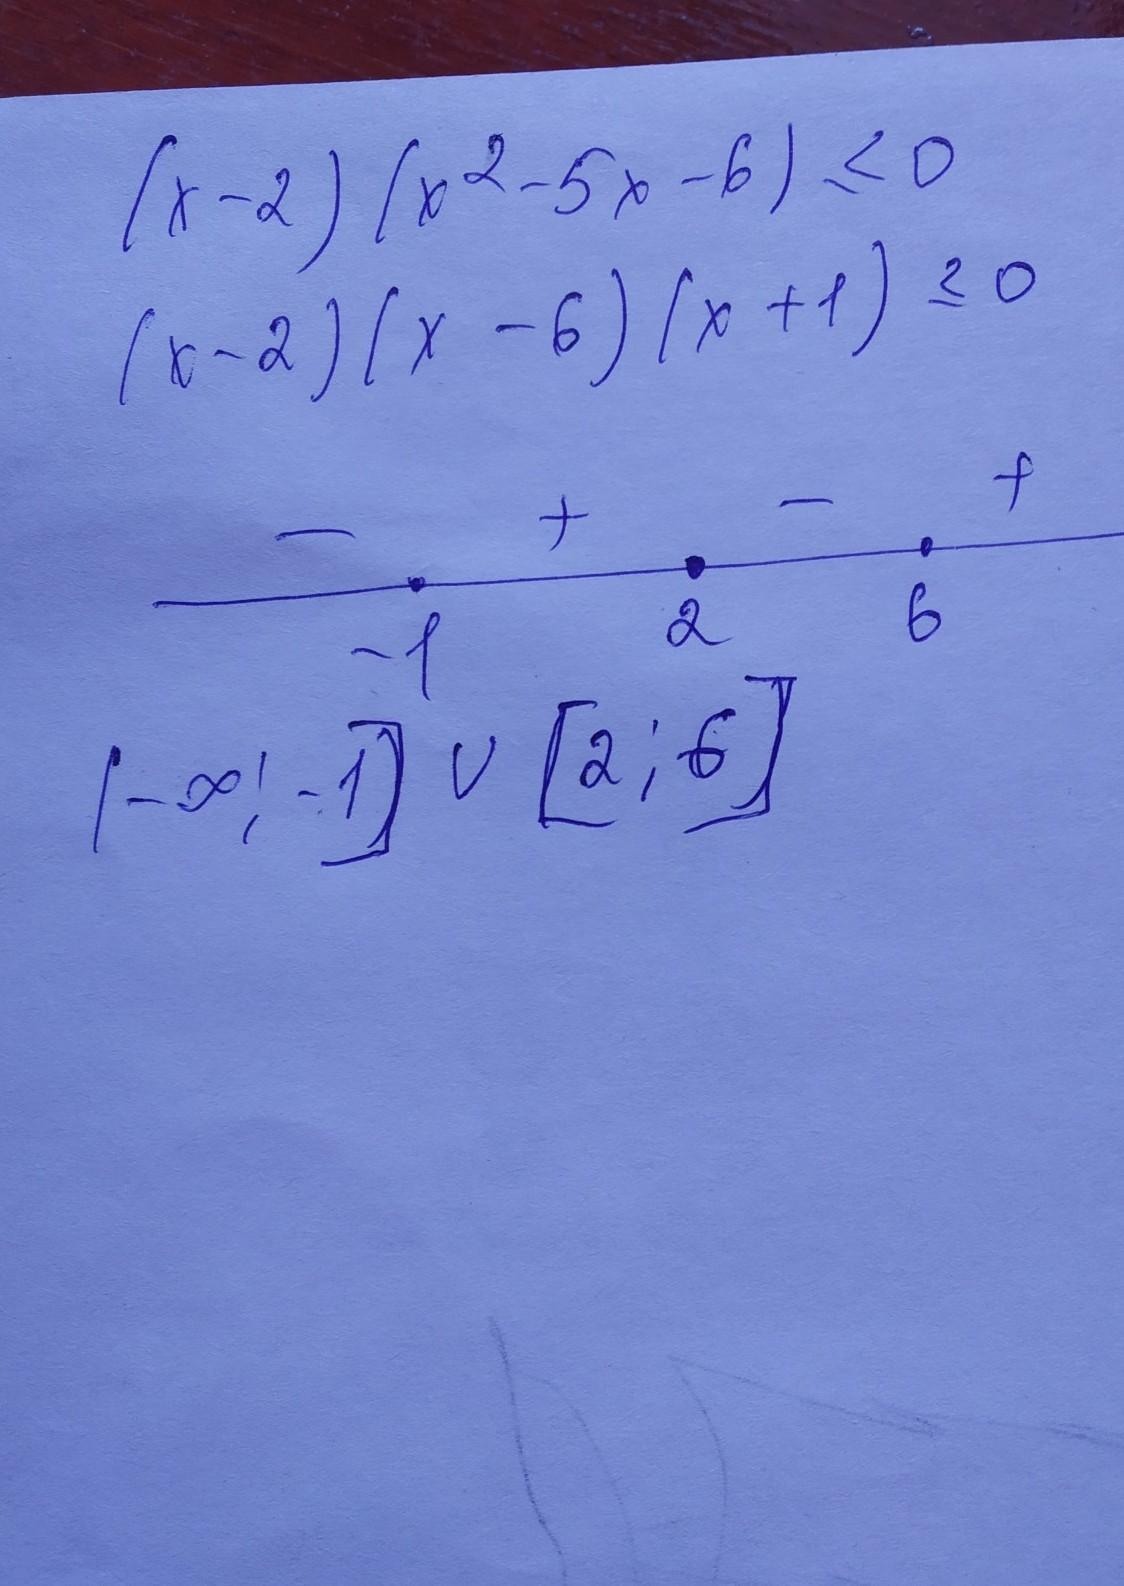 (x-2)(x²-5x-6) ≤ 0
(x-2)(x-6)(x+1) ≤ 0
- + - +
-1 2 6
(-∞; -1] ∪ [2; 6]